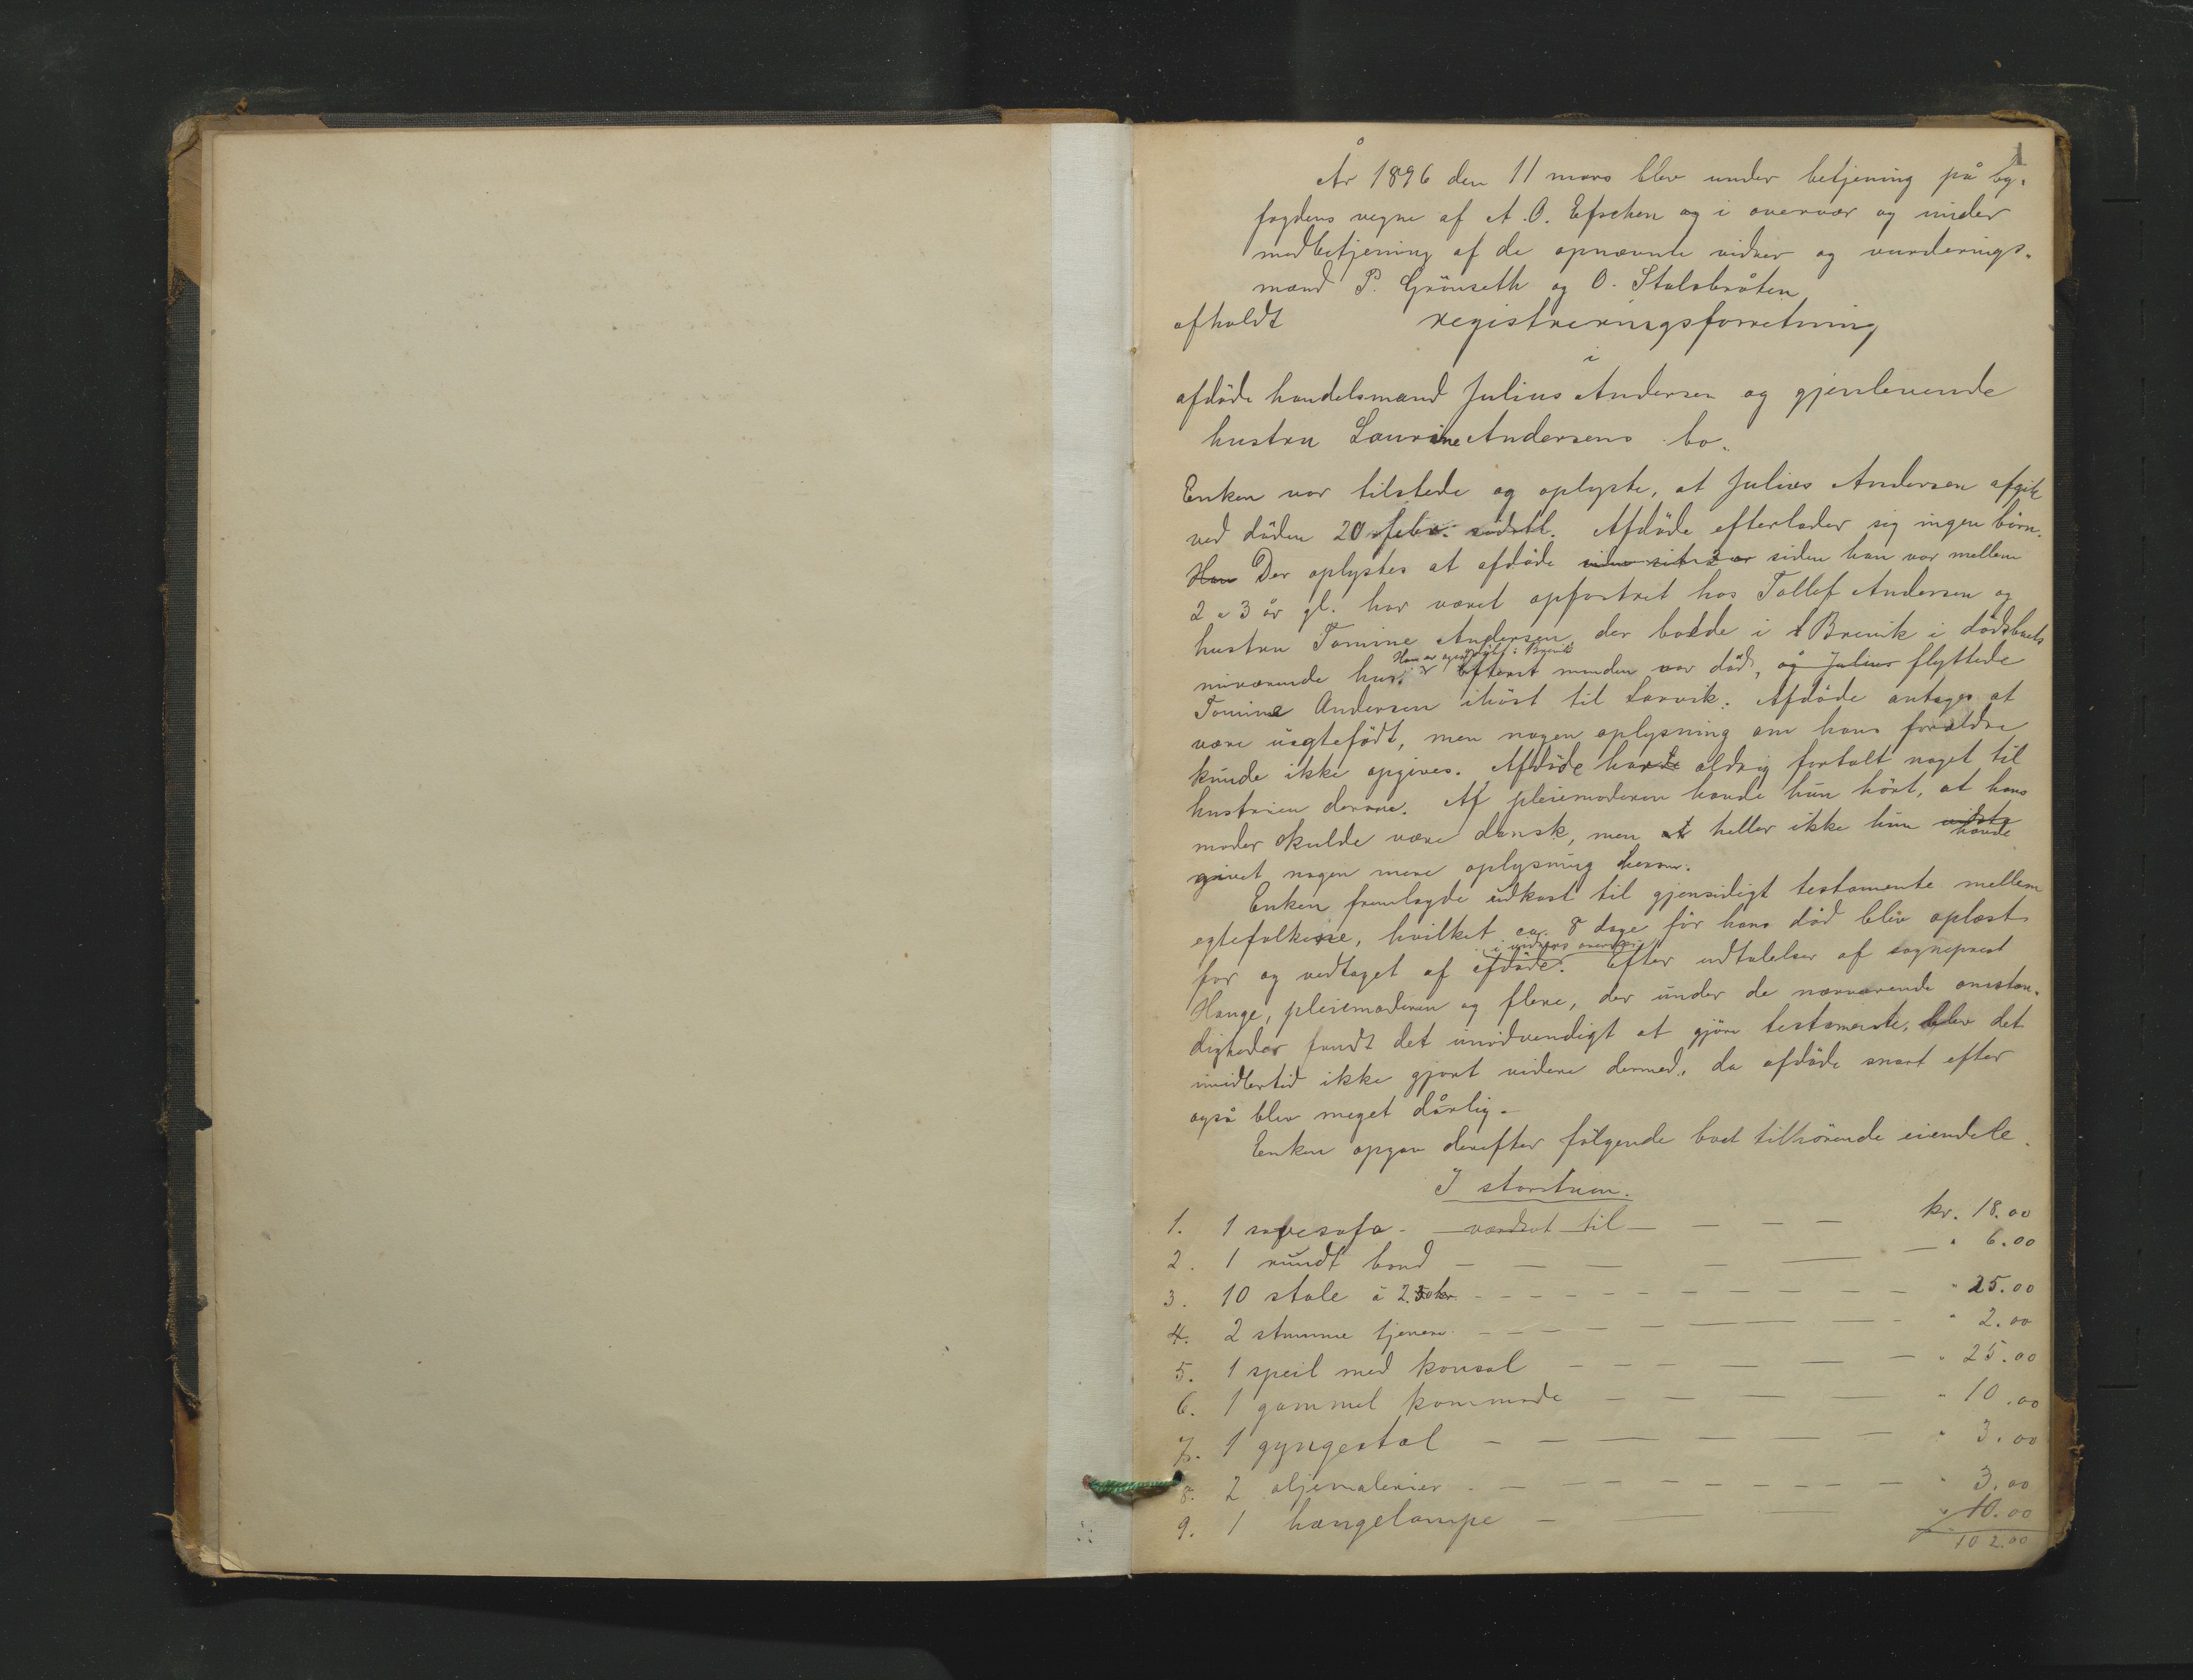 1
År 1896 den 11 mars blev under betjening på by-
fogdens vegne af A. O. Efschen og i overvær og under
medbetjening af de opnævnte vidner og vurderings-
mænd P. Grönseth og O. Stulsbråten
afholdt registreringsforretning
i
afdöde handelsmand Julius Andersen og gjenlevende
hustru Laurine Andersens bo.
Enken var tilstede og oplyste, at Julius Andersen afgik
ved döden 20 febr. sidstl. Afdöde efterlader sig ingen börn.
Han Der oplystes at afdöde siden han var mellem
2 a 3 år gl. har været opfostret hos Tollef Andersen og
hustru Tomine Andersen, der bodde i Brevik i dödsboets
Han er
nuværende hus. Efterat manden var död, og Julius flyttede
Tomine Andersen ihöst til Larvik. Afdöde antages at
være uægtefödt, men nogen oplysning om hans forældre
kunde ikke opgives. Afdöde havde aldrig fortalt noget til
hustruen derom. Af pleiemoderen havde hun hört, at hans
moder skulde være dansk, men heller ikke hun vidste
havde
givet nogen mere oplysning herom.
Enken fremlagde udkast til gjensidigt testamente mellem
egtefolkene, hvilket ca. 8 dage för hans död blev oplæst
i vidners overvær
for og vedtaget af afdöde. Efter udtalelser af sogneprest
Hauge, pleiemoderen og flere, der under de nærværende omstæn-
digheder fandt det unödvendigt at gjöre testamente, blev det
imidlertid ikke gjort videre dermed, da afdöde snart efter
også blev meget dårlig.
Enken opgav derefter fölgende boet tilhörende eiendele.
I storstuen.
1. 1 sovesofa - værdsat til - kr. 18.00
2. 1 rundt bord - " 6.00
3. 10 stole à 2.50 kr. - " 25.00
4. 2 stumme tjenere - " 2.00
5. 1 speil med konsol - " 25.00
6. 1 gammel kommode - " 10.00
7. 1 gyngestol - " 3.00
8. 2 oljemalerier - " 3.00
9. 1 hængelampe - " 10.00
102.00